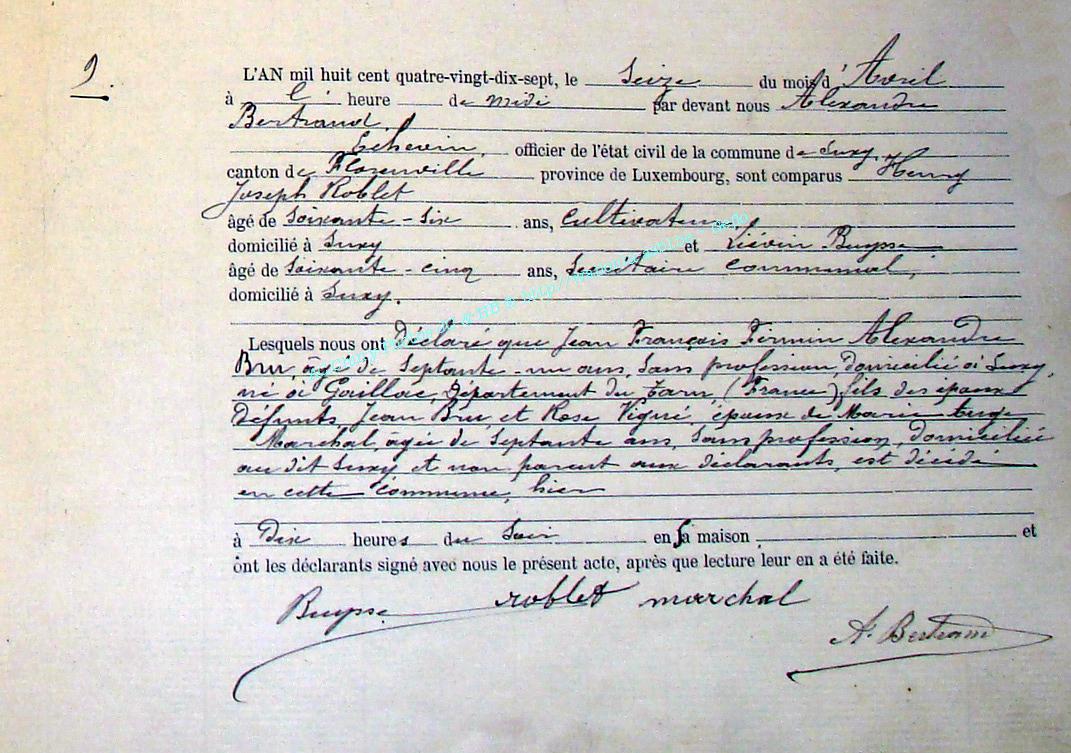 9.
L'AN mil huit cent quatre-vingt-dix-sept, le Seize du mois d'Avril
à l' heure de midi par devant nous Alexandre
Bertrand,
Echevin, officier de l'état civil de la commune de Suxy,
canton de Florenville province de Luxembourg, sont comparus Henry
Joseph Roblet
âgé de Soixante-Six ans, Cultivateur,
domicilié à Suxy et Liévin Buysse
âgé de Soixante-cinq ans, Secrétaire Communal,
domicilié à Suxy.
Lesquels nous ont déclaré que Jean François Firmin Alexandre
Bru, âgé de Septante-un ans, Sans profession, domicilié à Suxy,
né à Gaillac, Département du Tarn (France), fils des époux
défunts Jean Bru et Rose Vigué, époux de Marie
Marchal, âgée de Septante ans, Sans profession, domiciliée
au dit Suxy et non parent aux déclarants, est décédé
en cette commune, hier
à Dix heures du Soir en sa maison et
ont les déclarants signé avec nous le présent acte, après que lecture leur en a été faite.
Buysse roblet marchal
A. Bertrand